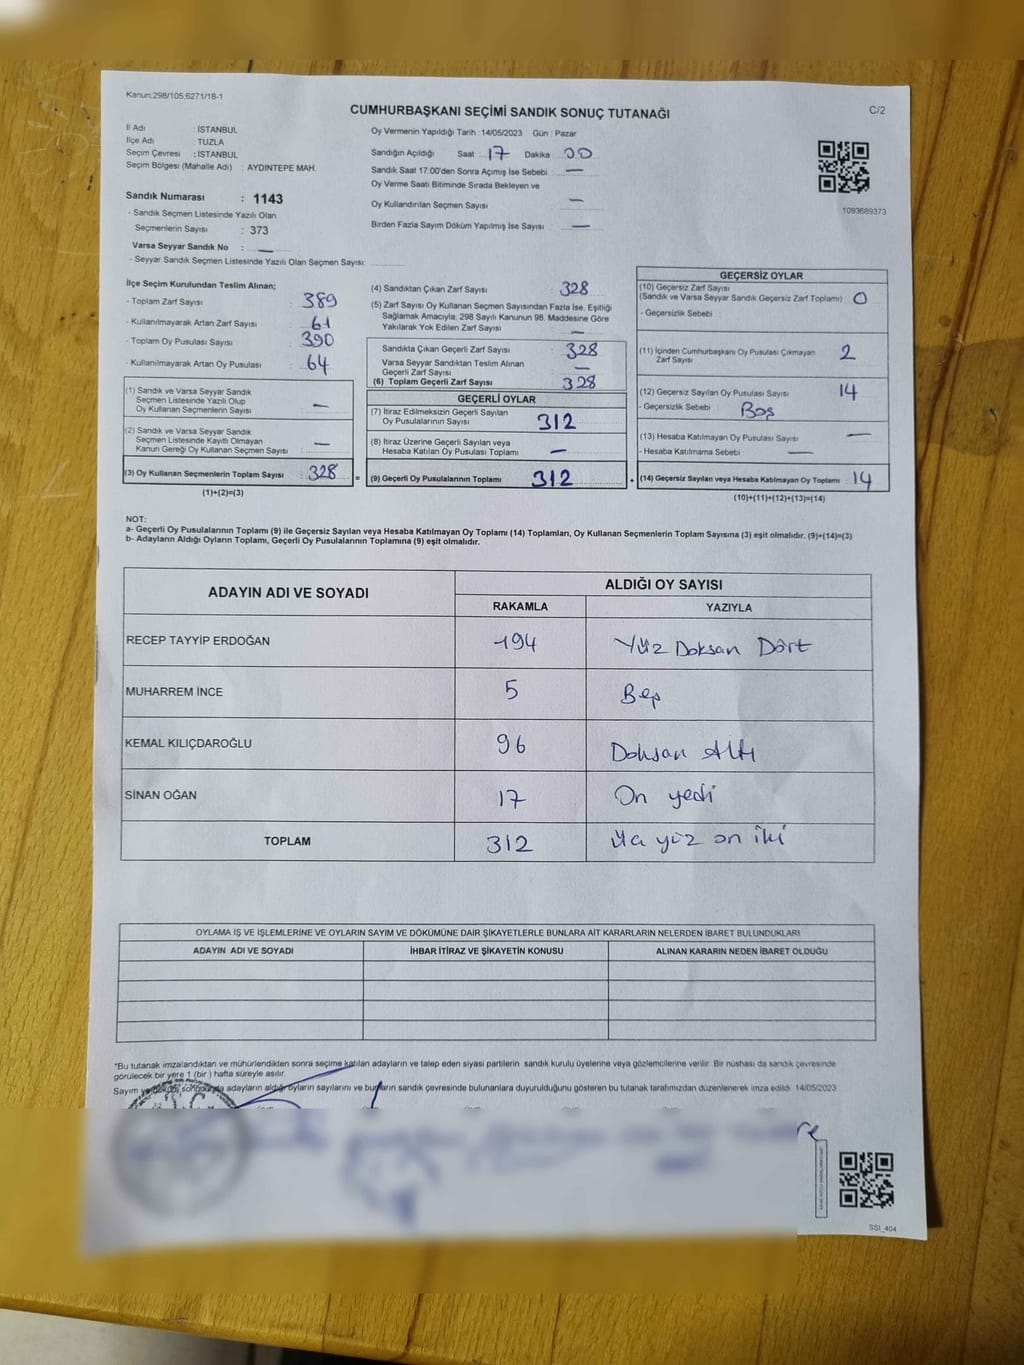 Kanun:298/105;6271/18-1
CUMHURBAŞKANI SEÇİMİ SANDIK SONUÇ TUTANAĞI
C/2
İl Adı : İSTANBUL
İlçe Adı : TUZLA
Seçim Çevresi : İSTANBUL
Seçim Bölgesi (Mahalle Adı) : AYDINTEPE MAH.
Oy Vermenin Yapıldığı Tarih : 14/05/2023 Gün : Pazar
Sandığın Açıldığı Saat : 17 Dakika : 00
Sandık Saat 17:00'den Sonra Açımış İse Sebebi : —
Oy Verme Saati Bitiminde Sırada Bekleyen ve
Oy Kullandırılan Seçmen Sayısı : —
Birden Fazla Sayım Döküm Yapılmış İse Sayısı : —
1093689373
Sandık Numarası : 1143
- Sandık Seçmen Listesinde Yazılı Olan
Seçmenlerin Sayısı : 373
Varsa Seyyar Sandık No : —
- Seyyar Sandık Seçmen Listesinde Yazılı Olan Seçmen Sayısı:
İlçe Seçim Kurulundan Teslim Alınan;
- Toplam Zarf Sayısı : 389
- Kullanılmayarak Artan Zarf Sayısı : 61
- Toplam Oy Pusulası Sayısı : 390
- Kullanılmayarak Artan Oy Pusulası : 64
(1) Sandık ve Varsa Seyyar Sandık
Seçmen Listesinde Yazılı Olup
Oy Kullanan Seçmenlerin Sayısı : —
(2) Sandık ve Varsa Seyyar Sandık
Seçmen Listesinde Kayıtlı Olmayan
Kanun Gereği Oy Kullanan Seçmen Sayısı : —
(3) Oy Kullanan Seçmenlerin Toplam Sayısı : 328
(1)+(2)=(3)
(4) Sandıktan Çıkan Zarf Sayısı : 328
(5) Zarf Sayısı Oy Kullanan Seçmen Sayısından Fazla İse, Eşitliği
Sağlamak Amacıyla, 298 Sayılı Kanunun 98. Maddesine Göre
Yakılarak Yok Edilen Zarf Sayısı : —
Sandıkta Çıkan Geçerli Zarf Sayısı : 328
Varsa Seyyar Sandıktan Teslim Alınan
Geçerli Zarf Sayısı : —
(6) Toplam Geçerli Zarf Sayısı : 328
GEÇERLİ OYLAR
(7) İtiraz Edilmeksizin Geçerli Sayılan
Oy Pusulalarının Sayısı : 312
(8) İtiraz Üzerine Geçerli Sayılan veya
Hesaba Katılan Oy Pusulası Toplamı : —
= (9) Geçerli Oy Pusulalarının Toplamı : 312 +
GEÇERSİZ OYLAR
(10) Geçersiz Zarf Sayısı
(Sandık ve Varsa Seyyar Sandık Geçersiz Zarf Toplamı) : 0
- Geçersizlik Sebebi :
(11) İçinden Cumhurbaşkanı Oy Pusulası Çıkmayan
Zarf Sayısı : 2
(12) Geçersiz Sayılan Oy Pusulası Sayısı : 14
- Geçersizlik Sebebi : Boş
(13) Hesaba Katılmayan Oy Pusulası Sayısı : —
- Hesaba Katılmama Sebebi : —
(14) Geçersiz Sayılan veya Hesaba Katılmayan Oy Toplamı : 14
(10)+(11)+(12)+(13)=(14)
NOT:
a- Geçerli Oy Pusulalarının Toplamı (9) ile Geçersiz Sayılan veya Hesaba Katılmayan Oy Toplamı (14) Toplamları, Oy Kullanan Seçmenlerin Toplam Sayısına (3) eşit olmalıdır. (9)+(14)=(3)
b- Adayların Aldığı Oyların Toplamı, Geçerli Oy Pusulalarının Toplamına (9) eşit olmalıdır.
ADAYIN ADI VE SOYADI
ALDIĞI OY SAYISI
RAKAMLA YAZIYLA
RECEP TAYYİP ERDOĞAN 194 Yüz Doksan Dört
MUHARREM İNCE 5 Beş
KEMAL KILIÇDAROĞLU 96 Doksan Altı
SİNAN OĞAN 17 On yedi
TOPLAM 312 üç yüz on iki
OYLAMA İŞ VE İŞLEMLERİNE VE OYLARIN SAYIM VE DÖKÜMÜNE DAİR ŞİKAYETLERLE BUNLARA AİT KARARLARIN NELERDEN İBARET BULUNDUKLARI
ADAYIN ADI VE SOYADI İHBAR İTİRAZ VE ŞİKAYETİN KONUSU ALINAN KARARIN NEDEN İBARET OLDUĞU
*Bu tutanak imzalandıktan ve mühürlendikten sonra seçime katılan adayların ve talep eden siyasi partilerin sandık kurulu üyelerine veya gözlemcilerine verilir. Bir nüshası da sandık çevresinde
görülecek bir yere 1 (bir) hafta süreyle asılır.
adayların aldığı oyların sayılarını ve bunların sandık çevresinde bulunanlara duyurulduğunu gösteren bu tutanak tarafımızdan düzenlenerek imza edildi. 14/05/2023
SS1_404